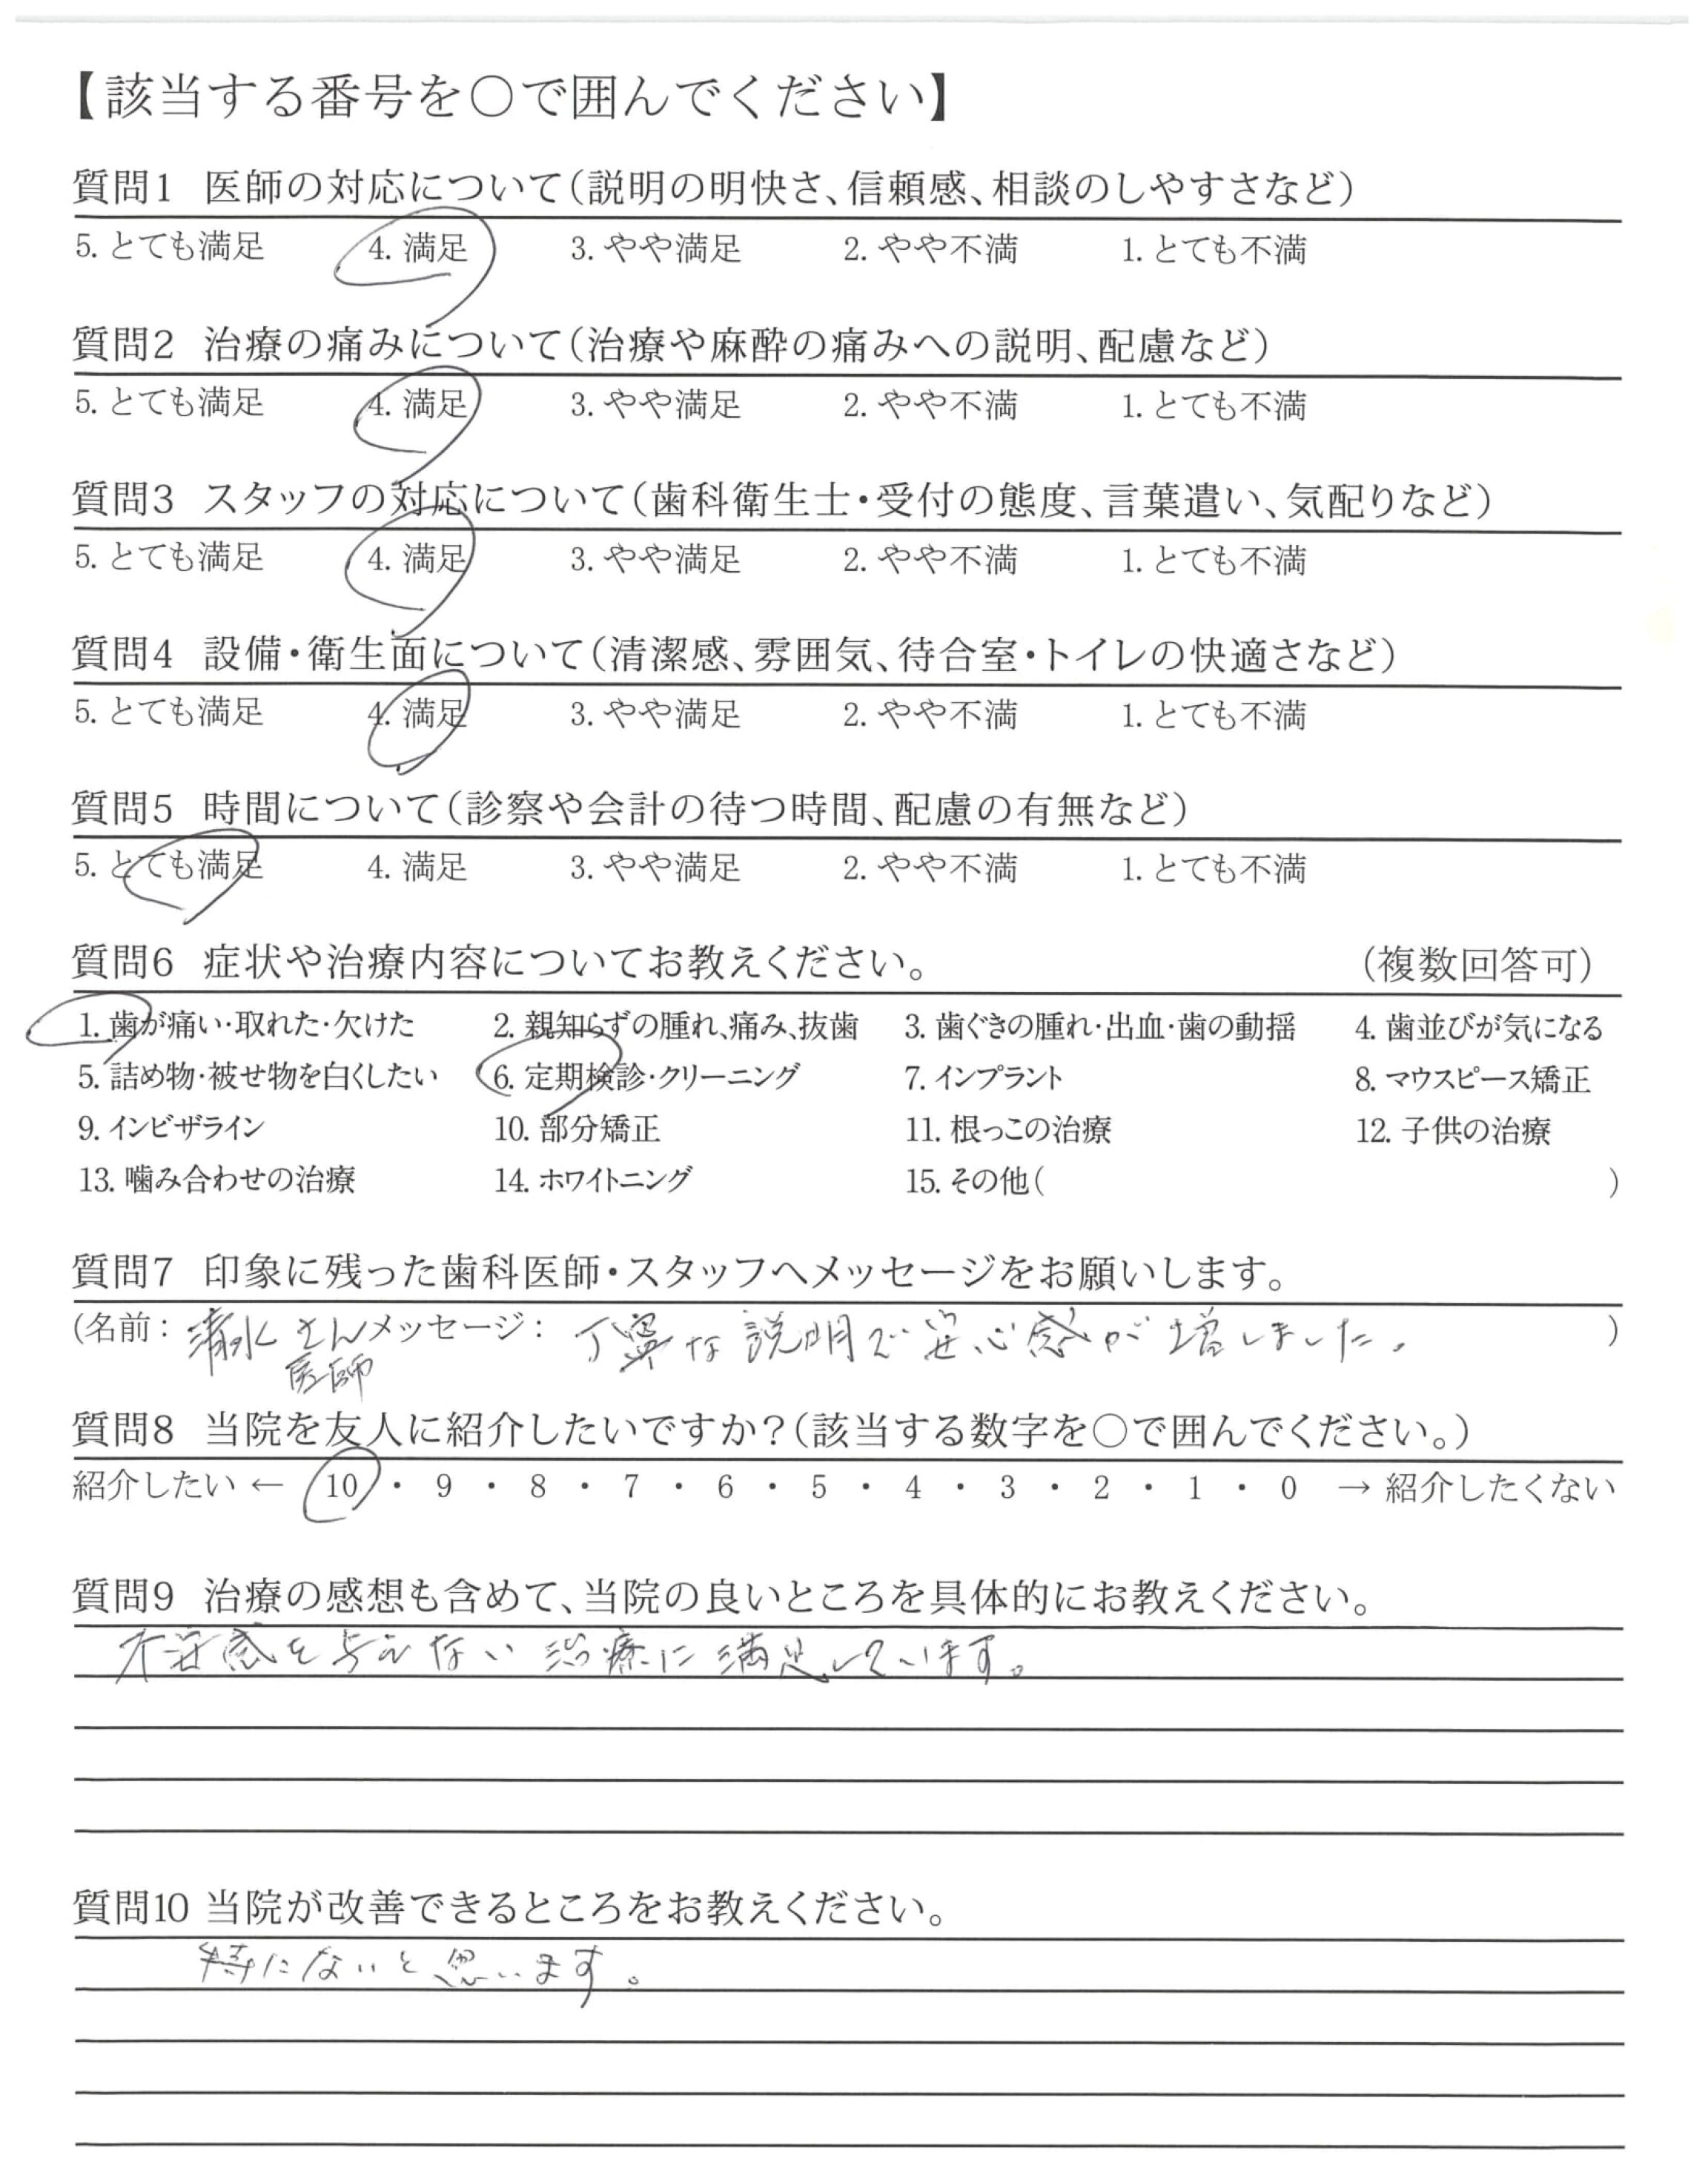 【該当する番号を○で囲んでください】
質問1 医師の対応について（説明の明快さ、信頼感、相談のしやすさなど）
5. とても満足 4. 満足 3. やや満足 2. やや不満 1. とても不満
質問2 治療の痛みについて（治療や麻酔の痛みへの説明、配慮など）
5. とても満足 4. 満足 3. やや満足 2. やや不満 1. とても不満
質問3 スタッフの対応について（歯科衛生士・受付の態度、言葉遣い、気配りなど）
5. とても満足 4. 満足 3. やや満足 2. やや不満 1. とても不満
質問4 設備・衛生面について（清潔感、雰囲気、待合室・トイレの快適さなど）
5. とても満足 4. 満足 3. やや満足 2. やや不満 1. とても不満
質問5 時間について（診察や会計の待つ時間、配慮の有無など）
5. とても満足 4. 満足 3. やや満足 2. やや不満 1. とても不満
質問6 症状や治療内容についてお教えください。 （複数回答可）
1. 歯が痛い・取れた・欠けた 2. 親知らずの腫れ、痛み、抜歯 3. 歯ぐきの腫れ・出血・歯の動揺 4. 歯並びが気になる
5. 詰め物・被せ物を白くしたい 6. 定期検診・クリーニング 7. インプラント 8. マウスピース矯正
9. インビザライン 10. 部分矯正 11. 根っこの治療 12. 子供の治療
13. 噛み合わせの治療 14. ホワイトニング 15. その他（ ）
質問7 印象に残った歯科医師・スタッフへメッセージをお願いします。
（名前： 清水 さん メッセージ： 丁寧な説明で安心感が増しました。 ）
医師
質問8 当院を友人に紹介したいですか？（該当する数字を○で囲んでください。）
紹介したい ← 10 ・ 9 ・ 8 ・ 7 ・ 6 ・ 5 ・ 4 ・ 3 ・ 2 ・ 1 ・ 0 → 紹介したくない
質問9 治療の感想も含めて、当院の良いところを具体的にお教えください。
不安感を与えない治療に満足しています。
質問10 当院が改善できるところをお教えください。
特にないと思います。